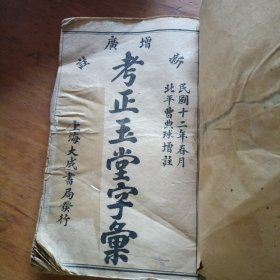 增廣
註
民國十二年春月
北平曹典球增註
考正玉堂字彙
上海大成書局發行